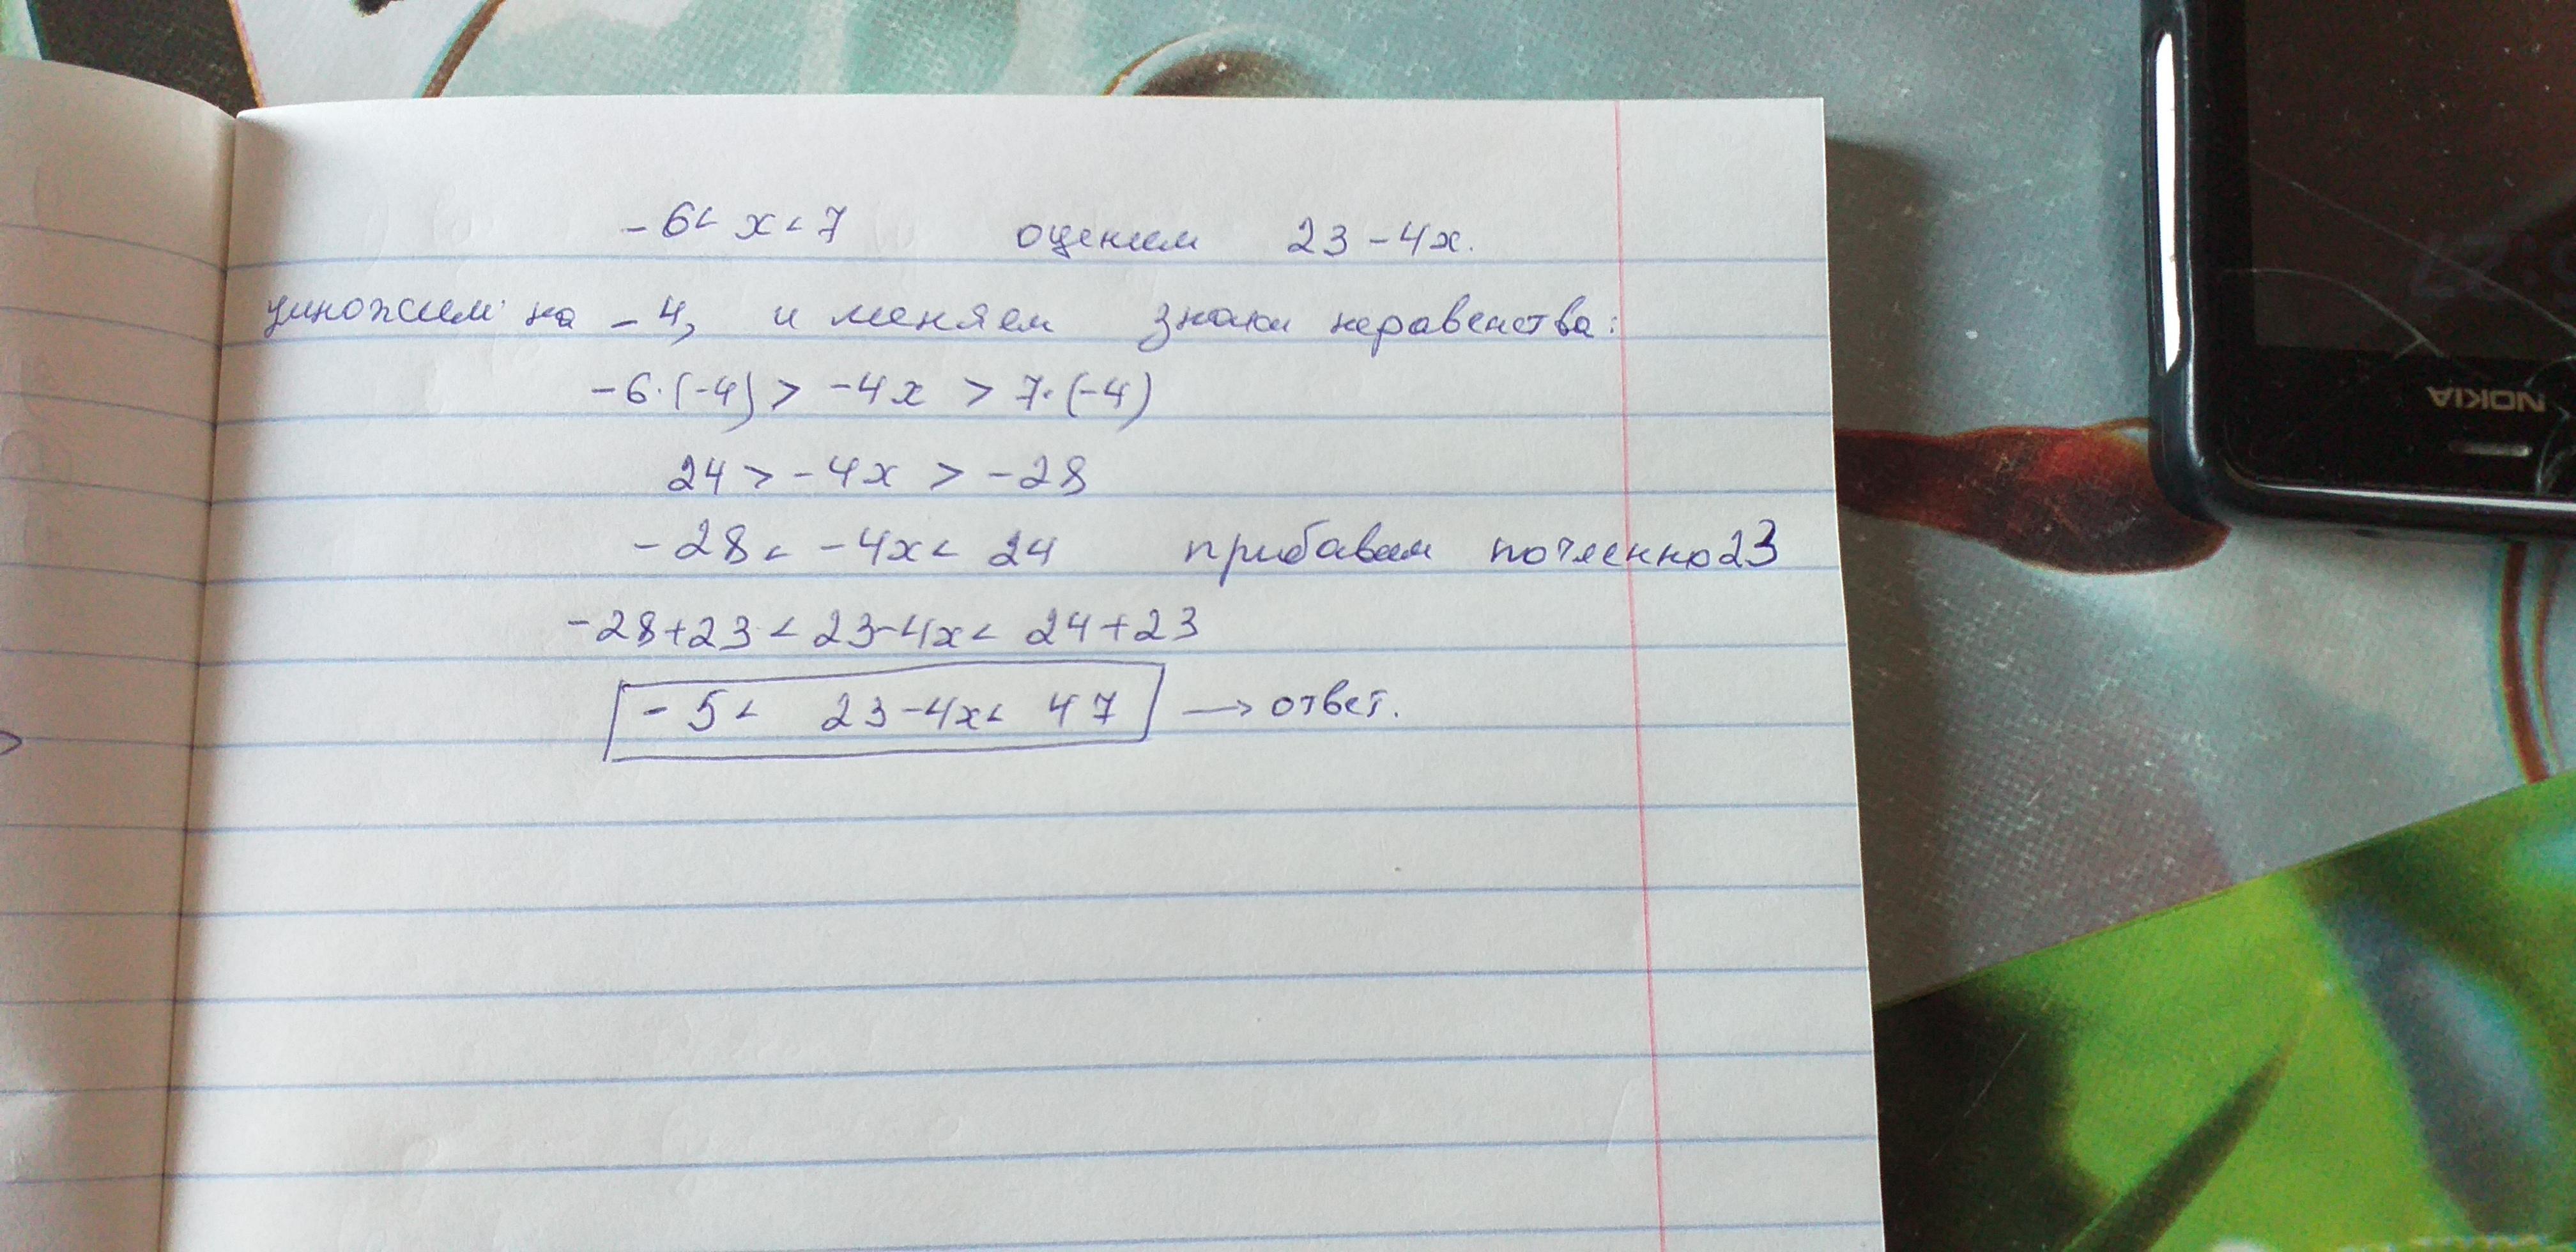 -6< x<7 оценим 23-4x.
умножим на -4, и меняем знаки неравенства:
-6·(-4) > -4x > 7·(-4)
24 > -4x > -28
-28 < -4x < 24 прибавим почленно 23
-28+23 < 23-4x < 24+23
-5 < 23-4x < 47 → ответ.
NOKIA